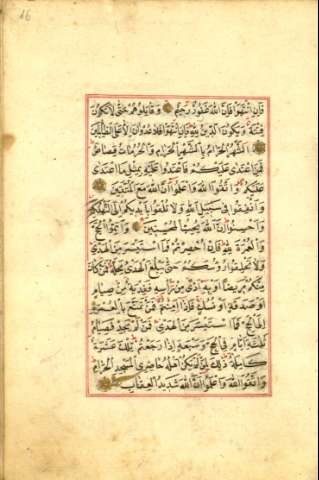 16
فَإِنِ انْتَهَوْا فَإِنَّ اللهَ غَفُورٌ رَحِيمٌ وَقَاتِلُوهُمْ حَتَّى لَا تَكُونَ
فِتْنَةٌ وَيَكُونَ الدِّينُ لِلّٰهِ فَإِنِ انْتَهَوْا فَلَا عُدْوَانَ إِلَّا عَلَى الظَّالِمِينَ
الشَّهْرُ الْحَرَامُ بِالشَّهْرِ الْحَرَامِ وَالْحُرُمَاتُ قِصَاصٌ
فَمَنِ اعْتَدَى عَلَيْكُمْ فَاعْتَدُوا عَلَيْهِ بِمِثْلِ مَا اعْتَدَى
عَلَيْكُمْ وَاتَّقُوا اللهَ وَاعْلَمُوا أَنَّ اللهَ مَعَ الْمُتَّقِينَ
وَأَنْفِقُوا فِي سَبِيلِ اللهِ وَلَا تُلْقُوا بِأَيْدِيكُمْ إِلَى التَّهْلُكَةِ
وَأَحْسِنُوا إِنَّ اللهَ يُحِبُّ الْمُحْسِنِينَ وَأَتِمُّوا الْحَجَّ
وَالْعُمْرَةَ لِلّٰهِ فَإِنْ أُحْصِرْتُمْ فَمَا اسْتَيْسَرَ مِنَ الْهَدْيِ
وَلَا تَحْلِقُوا رُؤُسَكُمْ حَتَّى يَبْلُغَ الْهَدْيُ مَحِلَّهُ فَمَنْ كَانَ
مِنْكُمْ مَرِيضًا أَوْ بِهِ أَذًى مِنْ رَأْسِهِ فَفِدْيَةٌ مِنْ صِيَامٍ
أَوْ صَدَقَةٍ أَوْ نُسُكٍ فَإِذَا أَمِنْتُمْ فَمَنْ تَمَتَّعَ بِالْعُمْرَةِ
إِلَى الْحَجِّ فَمَا اسْتَيْسَرَ مِنَ الْهَدْيِ فَمَنْ لَمْ يَجِدْ فَصِيَامُ
ثَلٰثَةِ أَيَّامٍ فِي الْحَجِّ وَسَبْعَةٍ إِذَا رَجَعْتُمْ تِلْكَ عَشَرَةٌ
كَامِلَةٌ ذٰلِكَ لِمَنْ لَمْ يَكُنْ أَهْلُهُ حَاضِرِي الْمَسْجِدِ الْحَرَامِ
وَاتَّقُوا اللهَ وَاعْلَمُوا أَنَّ اللهَ شَدِيدُ الْعِقَابِ